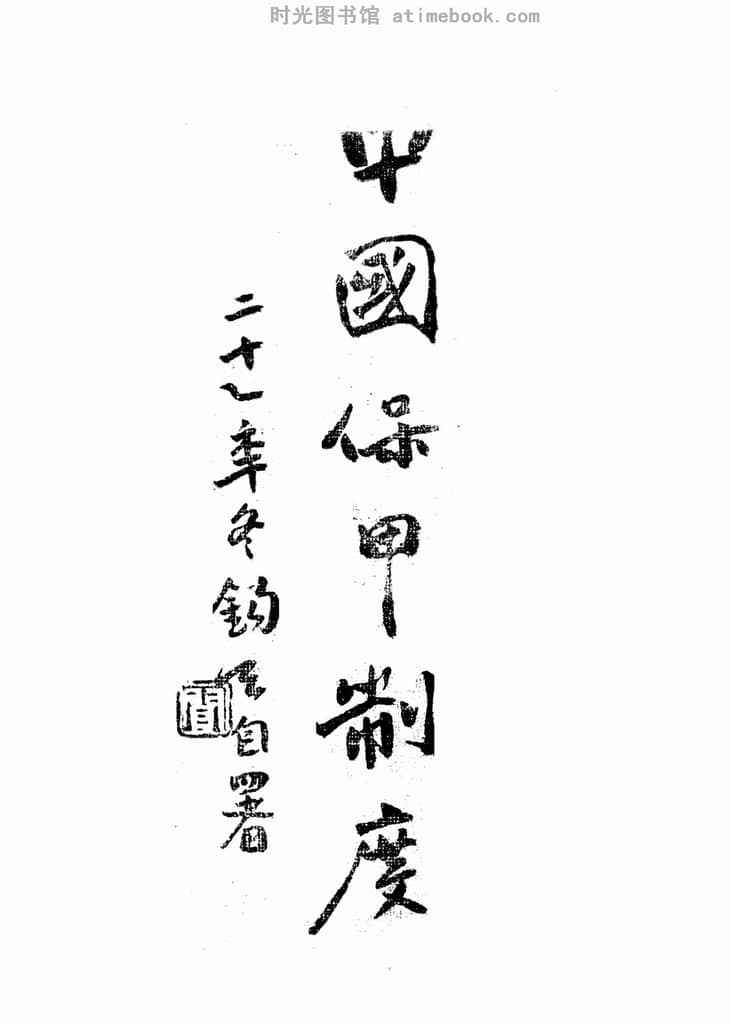 时光图书馆 atimebook.com
中國保甲制度
二十七年冬鈞天自署
聞